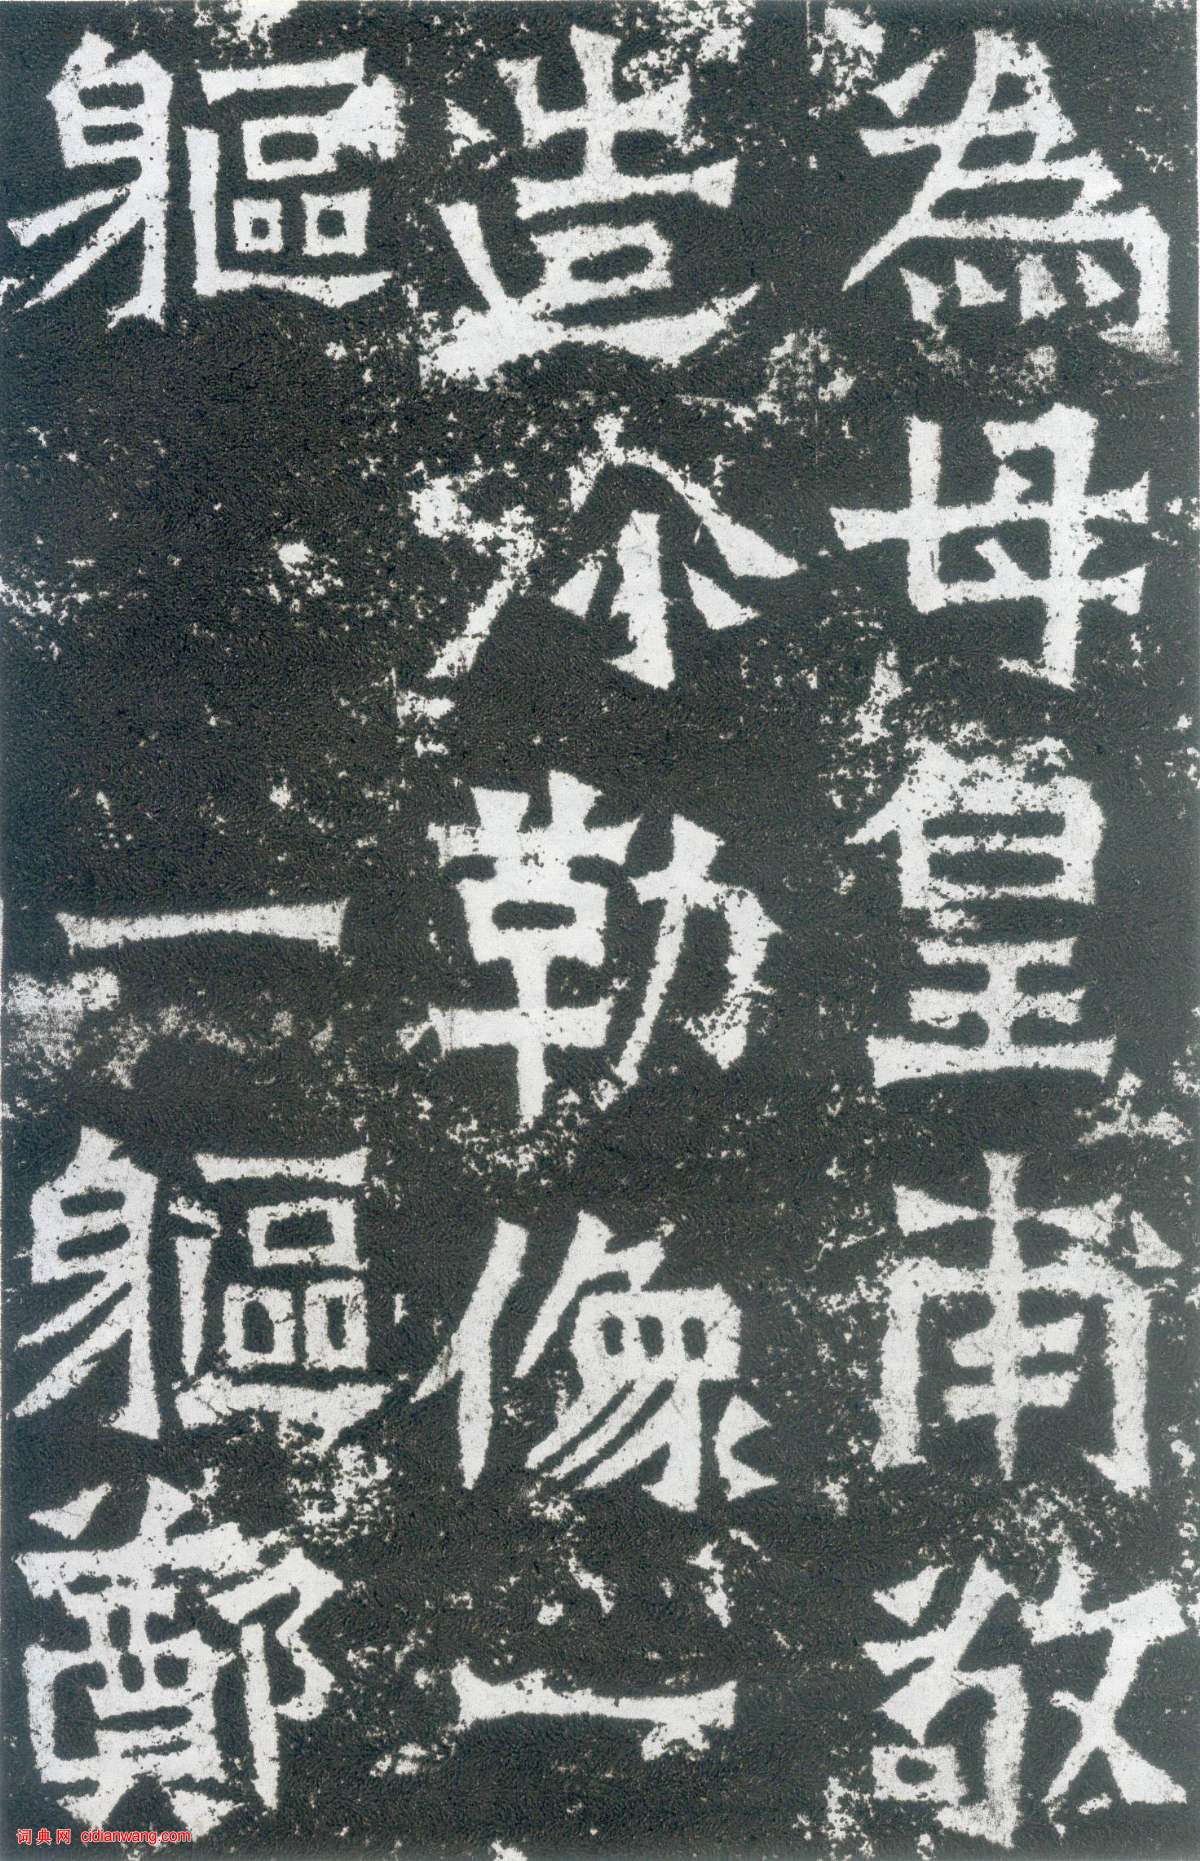 為母皇甫敬
造弥勒像一
軀 一軀鄭
词典网 cidianwang.com